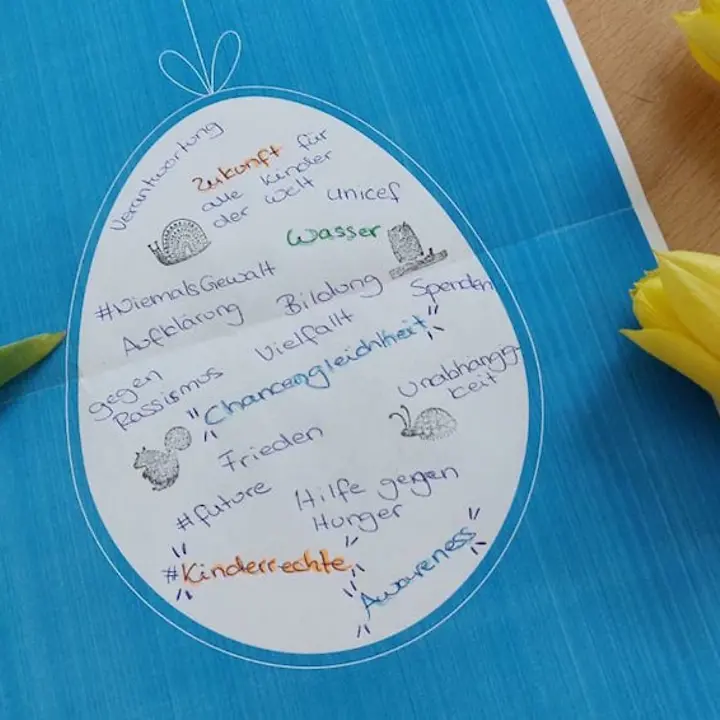 Verantwortung
Zukunft für
alle Kinder
der Welt
unicef
Wasser
#NiemalsGewalt
Aufklärung
Bildung
Spenden
Vielfallt
gegen
Rassismus
"Chancengleichheit"
Unabhängig-
keit
Frieden
#future
Hilfe gegen
Hunger
"#Kinderrechte"
"Awareness"